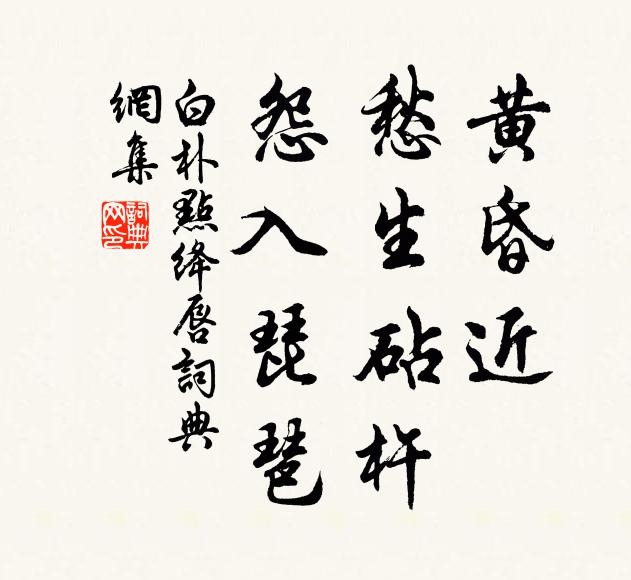 黃昏近
愁生砧杵
怨入琵琶
白朴點絳唇詞典
網集
詞典網印